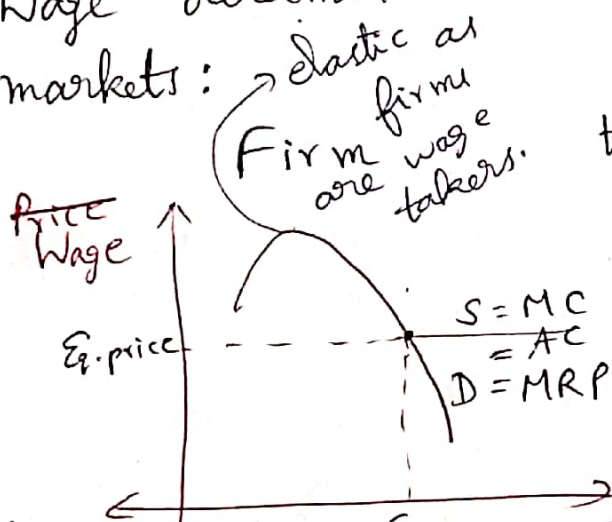 Wage
markets:
elastic as
firms
Firm
are wage
takers.
t
Price
Wage
Eq. price
S = MC
= AC
D = MRP